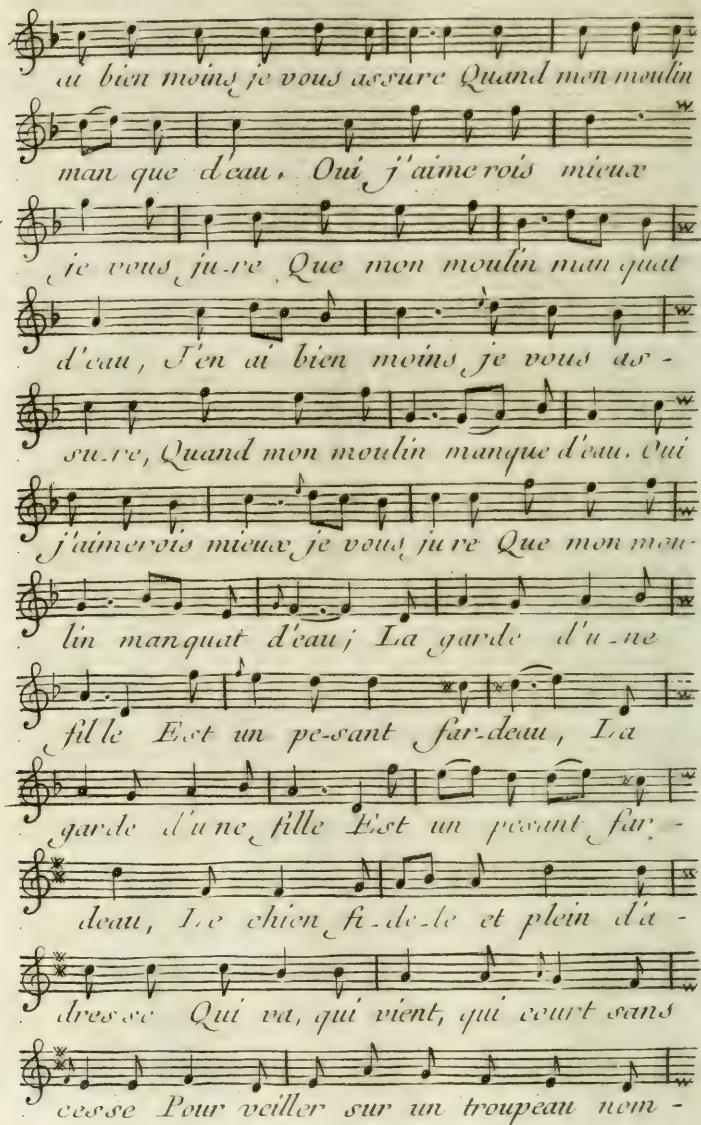 ai bien moins je vous assure Quand mon moulin
man que d'eau. Oui j'aimerois mieux
je vous ju-re Que mon moulin manquat
d'eau, J'en ai bien moins je vous as-
su-re, Quand mon moulin manque d'eau. Oui
j'aimerois mieux je vous jure Que mon mou-
lin manquat d'eau; La garde d'u-ne
fille Est un pe-sant far-deau, La
garde d'une fille Est un pesant far-
deau, Le chien fi-de-le et plein d'a-
dresse Qui va, qui vient, qui court sans
cesse Pour veiller sur un troupeau nom-